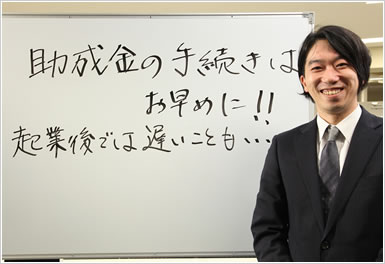 助成金の手続きは
お早めに!!
起業後では遅いことも...